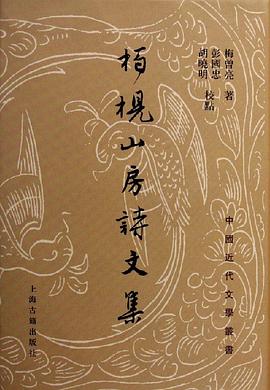 柏梘山房詩文集
梅曾亮 著
彭國忠
胡曉明 校點
中國近代文學叢書
上海古籍出版社